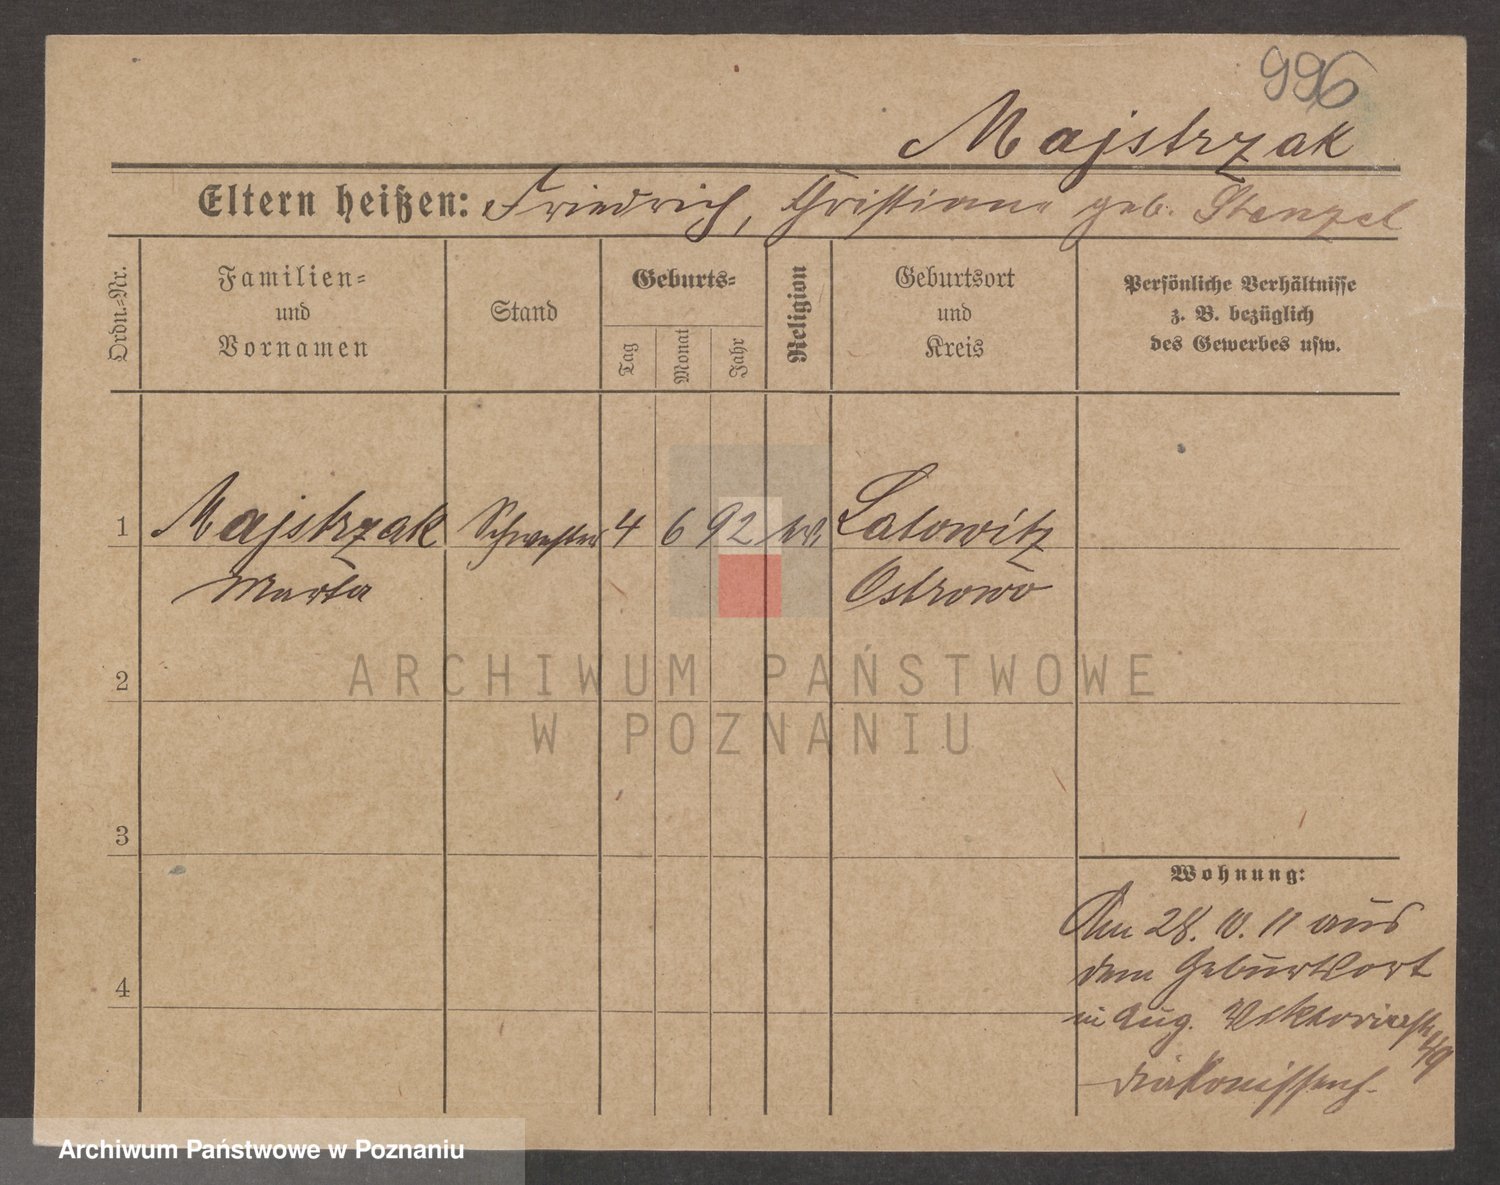 996
Majstrzak
Eltern heißen: Friedrich, Christiane geb. Stenzel
Ordn.-Nr.
Familien-
und
Vornamen
Stand
Geburts-
Tag
Monat
Jahr
Religion
Geburtsort
und
Kreis
Persönliche Verhältnisse
z. B. bezüglich
des Gewerbes usw.
1 Majstrzak Schwester 4 6 92 Latowitz
Marta Ostrowo
2
ARCHIWUM PAŃSTWOWE
W POZNANIU
3
Wohnung:
Am 28. 10. 11 aus
dem Geburtsort
in Aug. Viktoriastr
49
Diakonissenh.
4
Archiwum Państwowe w Poznaniu